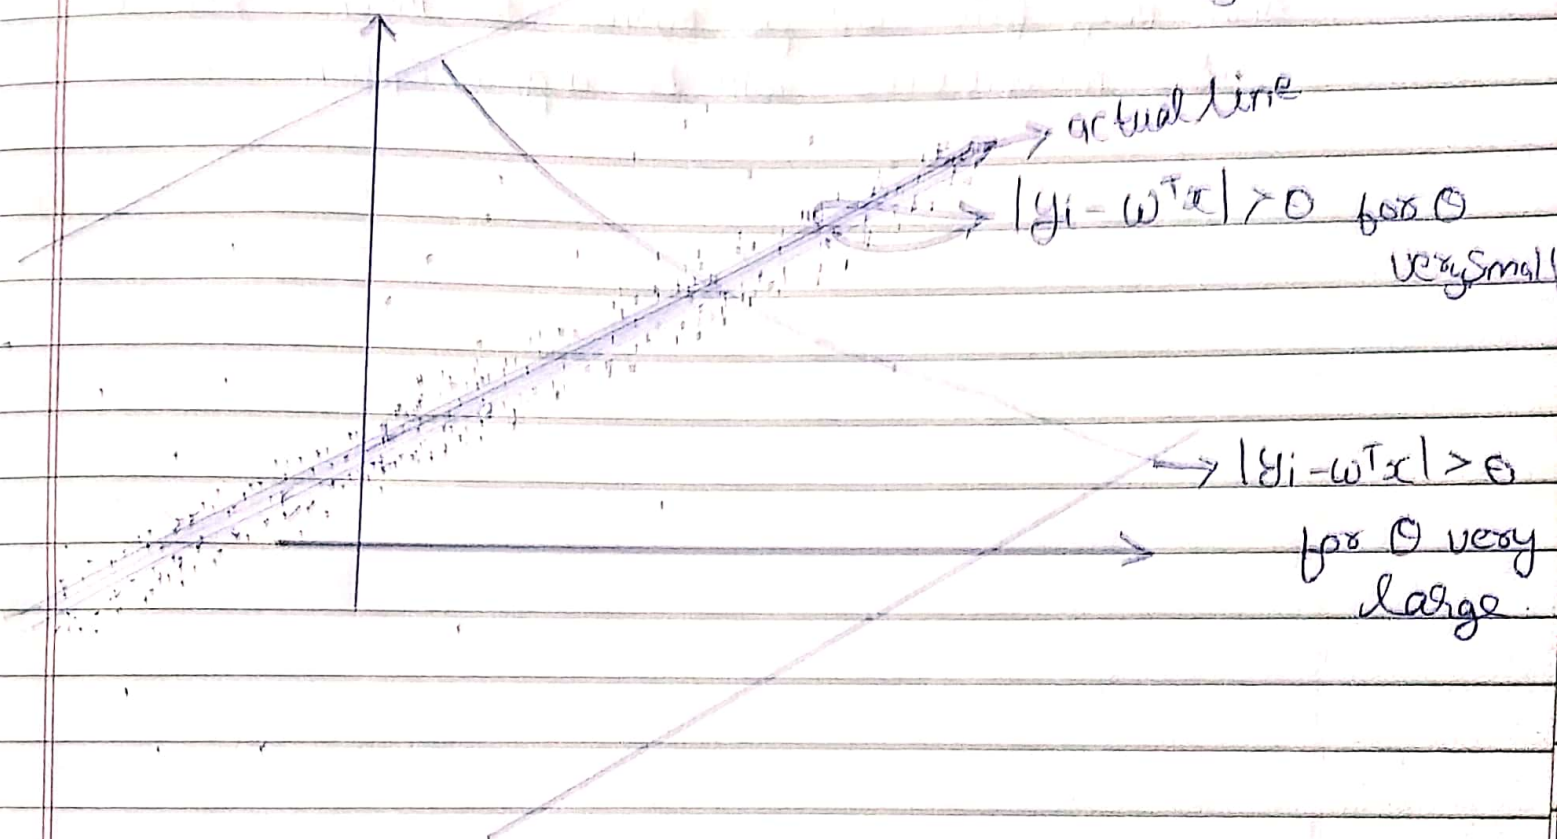 actual line
|yi - ωᵀx| > θ for θ
very small
→ |yi - ωᵀx| > θ
for θ very
large.